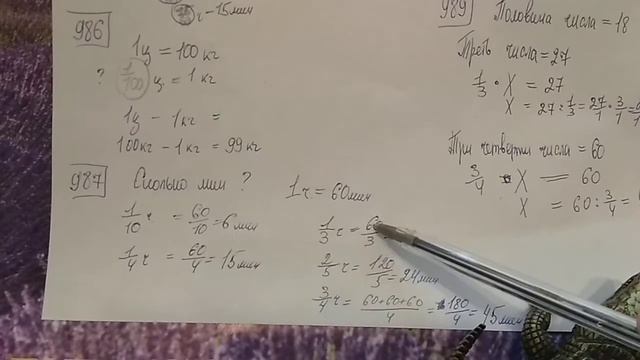 ч - 15 мин
986
1ц = 100 кг
? 1/100 ц = 1 кг
1ц - 1кг =
100кг - 1кг = 99 кг
987 Сколько мин ?
1 ч = 60 мин
1/10 ч = 60/10 = 6 мин
1/4 ч = 60/4 = 15 мин
1/3 ч = 60/3
2/5 ч = 120/5 = 24 мин
3/4 ч = 60+60+60/4 = 180/4 = 45 мин
989 Половина числа = 18
Треть числа = 27
1/3 · X = 27
X = 27 : 1/3 = 27/1 · 3/1 =
Три четверти числа = 60
3/4 · X = 60
X = 60 : 3/4 =